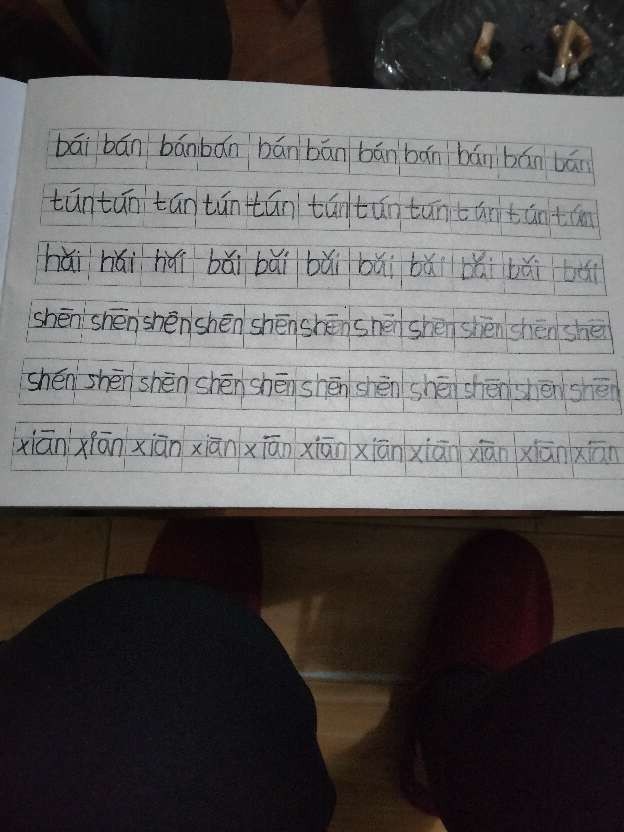 bái bán bán bán bán bán bán bán bán bán bán
tún tún tún tún tún tún tún tún tún tún tún
hǎi hǎi hǎi bǎi bǎi bǎi bǎi bǎi bǎi bǎi bǎi
shēn shēn shēn shēn shēn shēn shēn shēn shēn shēn shēn
shén shēn shēn shēn shēn shēn shēn shēn shēn shēn shēn
xiān xiān xiān xiān xiān xiān xiān xiān xiān xiān xiān